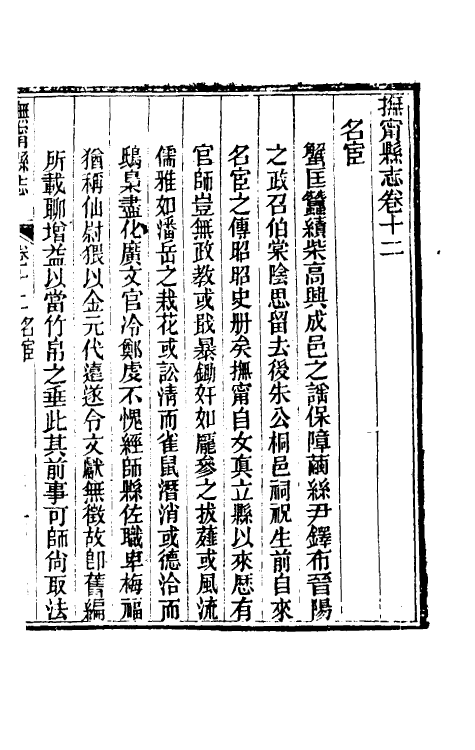 撫甯縣志卷十二
名宦
蟹匡蠶績柴高興成邑之謠保障繭絲尹鐸布晉陽
之政召伯棠陰思留去後朱公桐邑祠祝生前自來
名宦之傳昭昭史册矣撫甯自女眞立縣以來歴有
官師豈無政教或戢暴鋤奸如龐參之拔薤或風流
儒雅如潘岳之栽花或訟清而雀鼠潛消或德洽而
鴟梟盡化廣文官冷鄭虔不愧經師縣佐職卑梅福
猶稱仙尉猥以金元代遠遂令文獻無徵故卽舊編
所載聊增益以當竹帛之垂此其前事可師尙取法
撫甯縣志
卷十二名宦
一